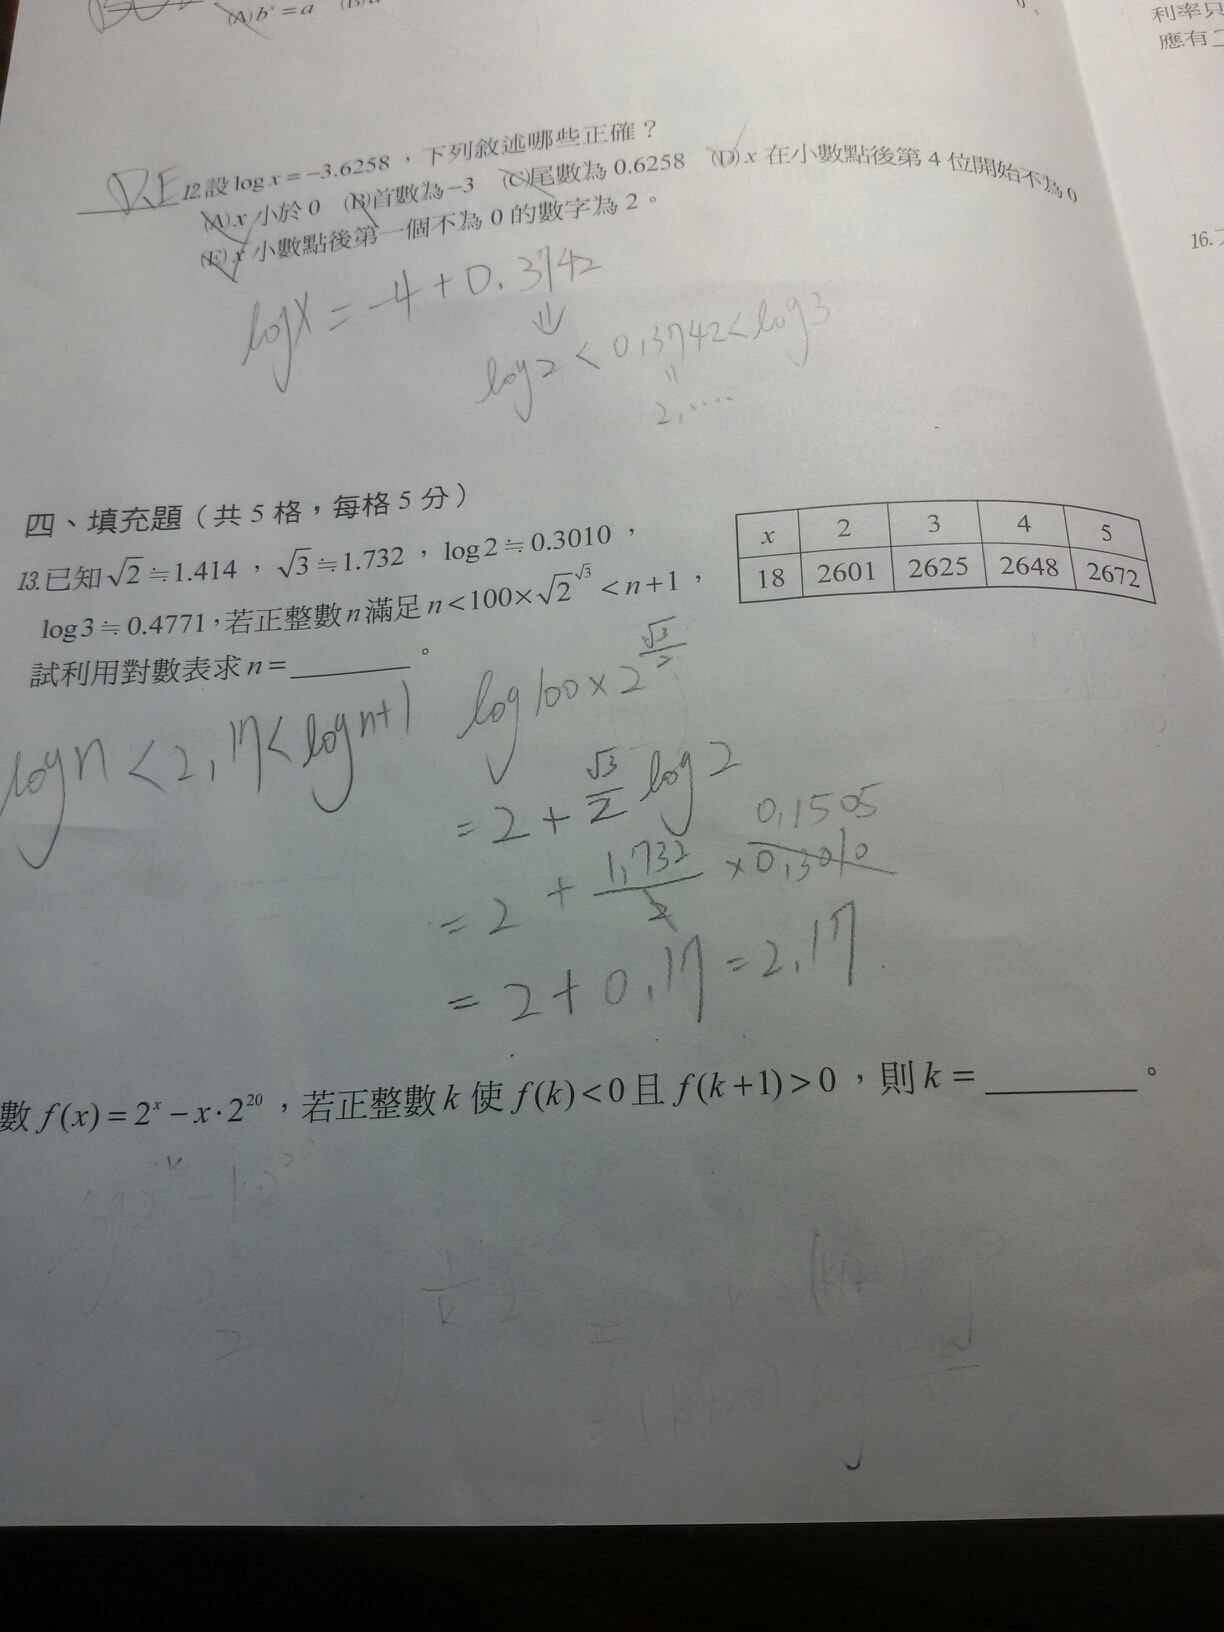 (A) bˣ = a (B)
利率只
應有二
DE 12.設 log x = −3.6258，下列敘述哪些正確？
(A) x 小於 0 (B)首數為−3 (C)尾數為 0.6258 (D) x 在小數點後第 4 位開始不為 0
(E) x 小數點後第一個不為 0 的數字為 2。
16.
logx = −4 + 0.3742
⇓
log2 < 0.3742 < log3
=
2.....
四、填充題（共 5 格，每格 5 分）
13.已知 √2 ≒ 1.414，√3 ≒ 1.732，log 2 ≒ 0.3010，
log 3 ≒ 0.4771，若正整數 n 滿足 n < 100 × √2^√3 < n + 1，
試利用對數表求 n = ______。
x 2 3 4 5
18 2601 2625 2648 2672
logn < 2.17 < logn+1
log100 × 2^(√3/2)
= 2 + √3/2 log2
0.1505
= 2 + 1.732/2 × 0.3010
= 2 + 0.17 = 2.17
數 f(x) = 2ˣ − x · 2²⁰，若正整數 k 使 f(k) < 0 且 f(k + 1) > 0，則 k = ______。